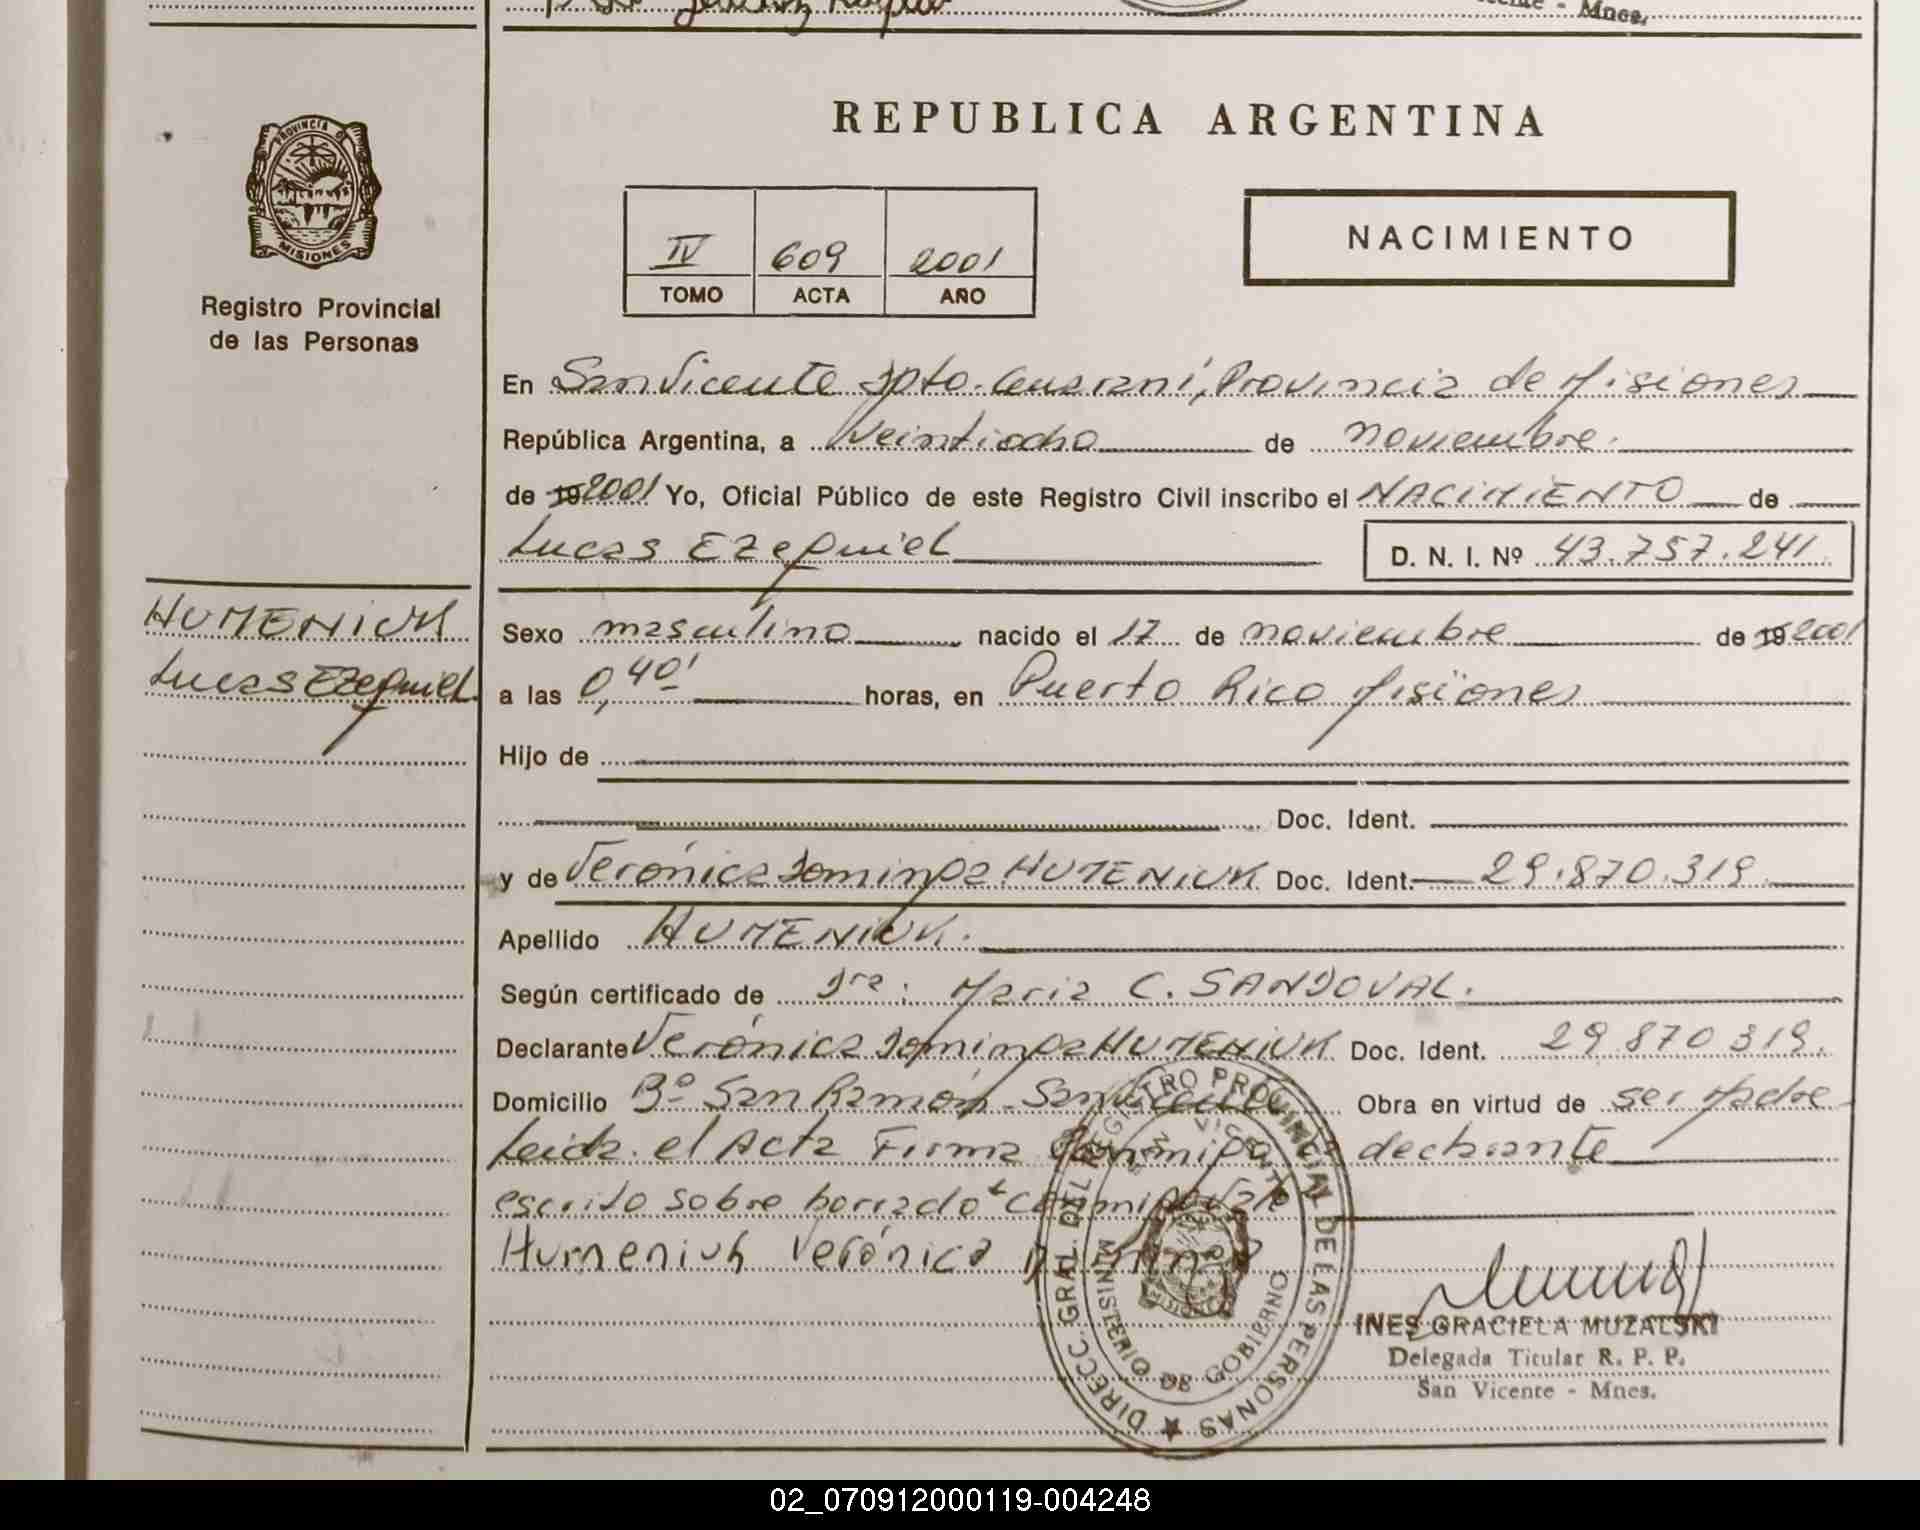 Mnes.
REPUBLICA ARGENTINA
PROVINCIA D
MISIONES
Registro Provincial
de las Personas
IV 609 2001
TOMO ACTA AÑO
NACIMIENTO
En San Vicente Dpto. Guaraní, Provincia de Misiones
República Argentina, a Veintiocho de noviembre.
de 19 2001 Yo, Oficial Público de este Registro Civil inscribo el NACIMIENTO de
Lucas Ezequiel D. N. I. Nº 43.757.241.
HUMENIUK
Lucas Ezequiel
Sexo masculino nacido el 17 de noviembre de 19 2001
a las 0,40' horas, en Puerto Rico Misiones
Hijo de
Doc. Ident.
y de Verónica Dominga HUMENIUK Doc. Ident. 29.870.319
Apellido HUMENIUK.
Según certificado de Dra: Maria C. SANDOVAL.
Declarante Verónica Dominga HUMENIUK Doc. Ident. 29 870 319.
Domicilio Bº San Ramón - San Vicente Obra en virtud de ser Madre
Leida el Acta Firma conmigo declarante
escrito sobre borrado "conmigo" Vale
Humeniuk Verónica
DIRECC. GRAL. DEL REGISTRO PROVINCIAL DE LAS PERSONAS
MINISTERIO DE GOBIERNO
SAN VICENTE
MISIONES
INES GRACIELA MUZALSKI
Delegada Titular R. P. P.
San Vicente - Mnes.
02_070912000119-004248